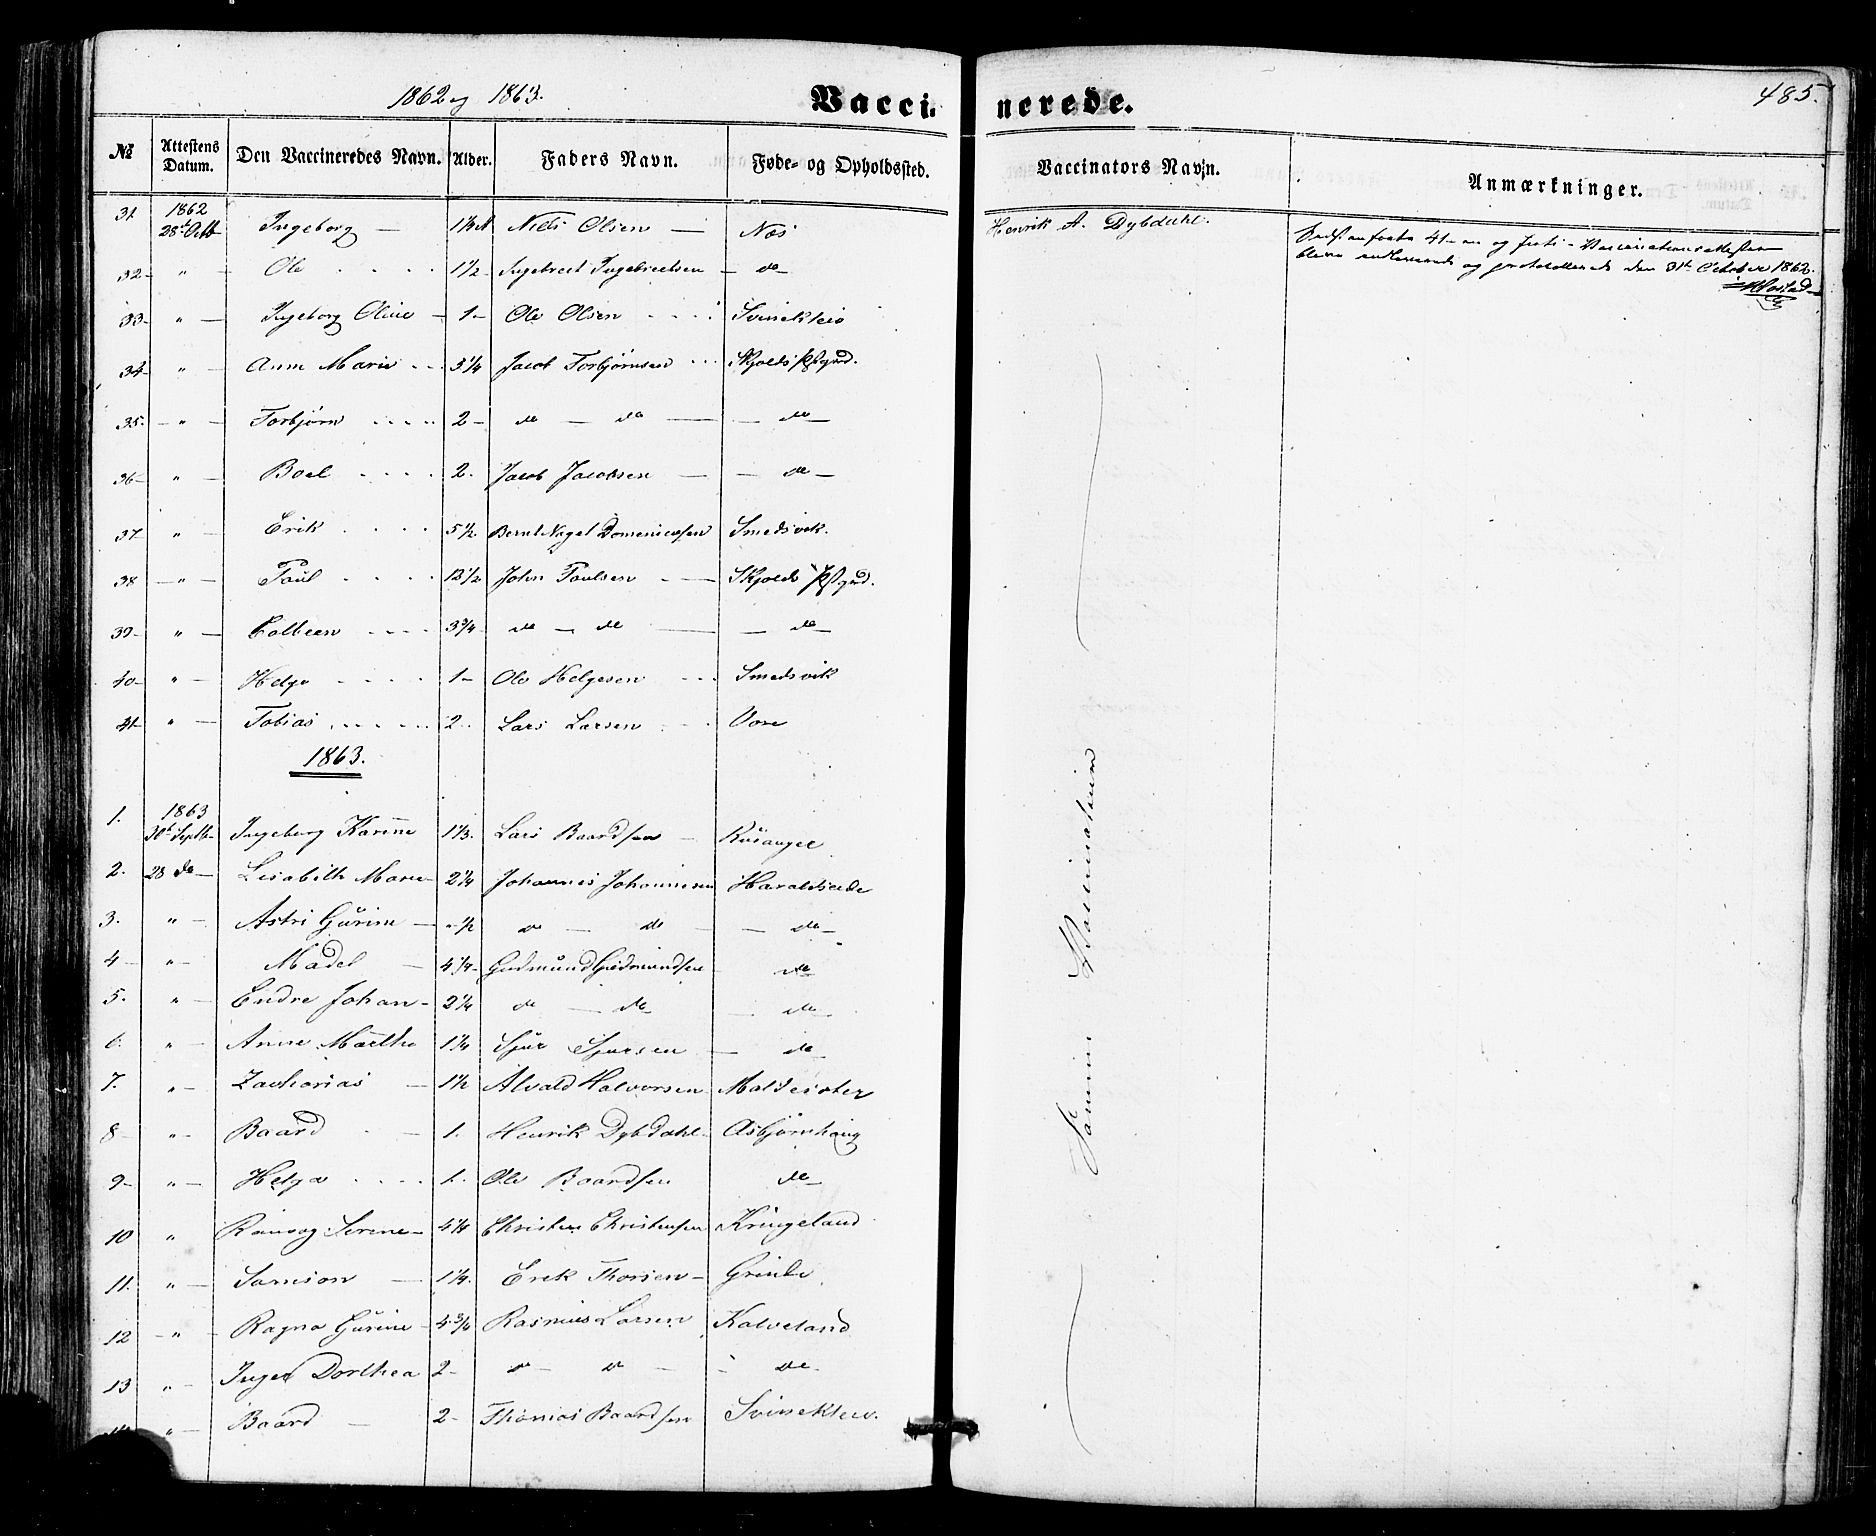 1862 og 1863.
Vacci- nerede.
485.
№ Attestens Datum. Den Vaccineredes Navn. Alder. Faders Navn. Føde- og Opholdssted. Vaccinators Navn. Anmærkninger.
31 1862 28de Octb Ingeborg — Niels Olsen — Næs Henrik A. Dybdahl.
41 og
og protocollerede den 31te October 1862.
32- " — Ole 1 1/2 - Ingebreet Ingebreetsen — do —
33- " — Ingeborg Oline — 1 - Ole Olsen Svinekleiv
34- " — Anne Marie 3 1/4 Jacob Torbjørnsen Skjolds Præstgjed.
35. — " — Torbjørn 2 - do — do — — do —
36- " — Boel 2. Jacob Jacobsen — — do —
37 " — Erik 5 1/2 Bernt Nagel Domenicusen Smedsvik.
38 — " — Paul 12 1/2 John Paulsen — Skjolds Præstgjed.
39- " — 3 3/4 do — do — — do —
40- " — Helge 1 - Ole Helgesen Smedsvik
41- " — Tobias 2 Lars Larsen Vore
1863.
1. 1863 30te Septb- Ingeborg Karine 1 1/3. Lars Baardsen —
2. 28 do — Lisabeth Marie 2 1/4 Johannes Johannesen Haraldseide
3. " — Astri Gurine — " 1/2 do — do — — do —
4 " — Madel — 4 1/4 - Gudmund Gudmundsen do
5. " — Endre Johan - 2 1/4 do — do — do
6. " — Anne Martha 1 1/4 Sjur Sjursen — do
7. " — Zacharias — 1 1/2 Alvald Halvorsen
8 " — Baard — 1. Henrik Dybdahl. Asbjørnhaug
9 - " — Helga 1. Ole Baardsen do —
10 " Serine — 4 1/4 Christen Christensen Kringeland
11. " — Samson — 1 1/4. Erik Thorsen — Grinde
12 - " — Ragna Gurine 4 3/4 Rasmus Larsen Kalveland
13 " — Inger Dorthea 2 - do — do — do —
" — Baard — 2 - Thomas Baardsen Svinekleiv.
Samme Vaccinateur